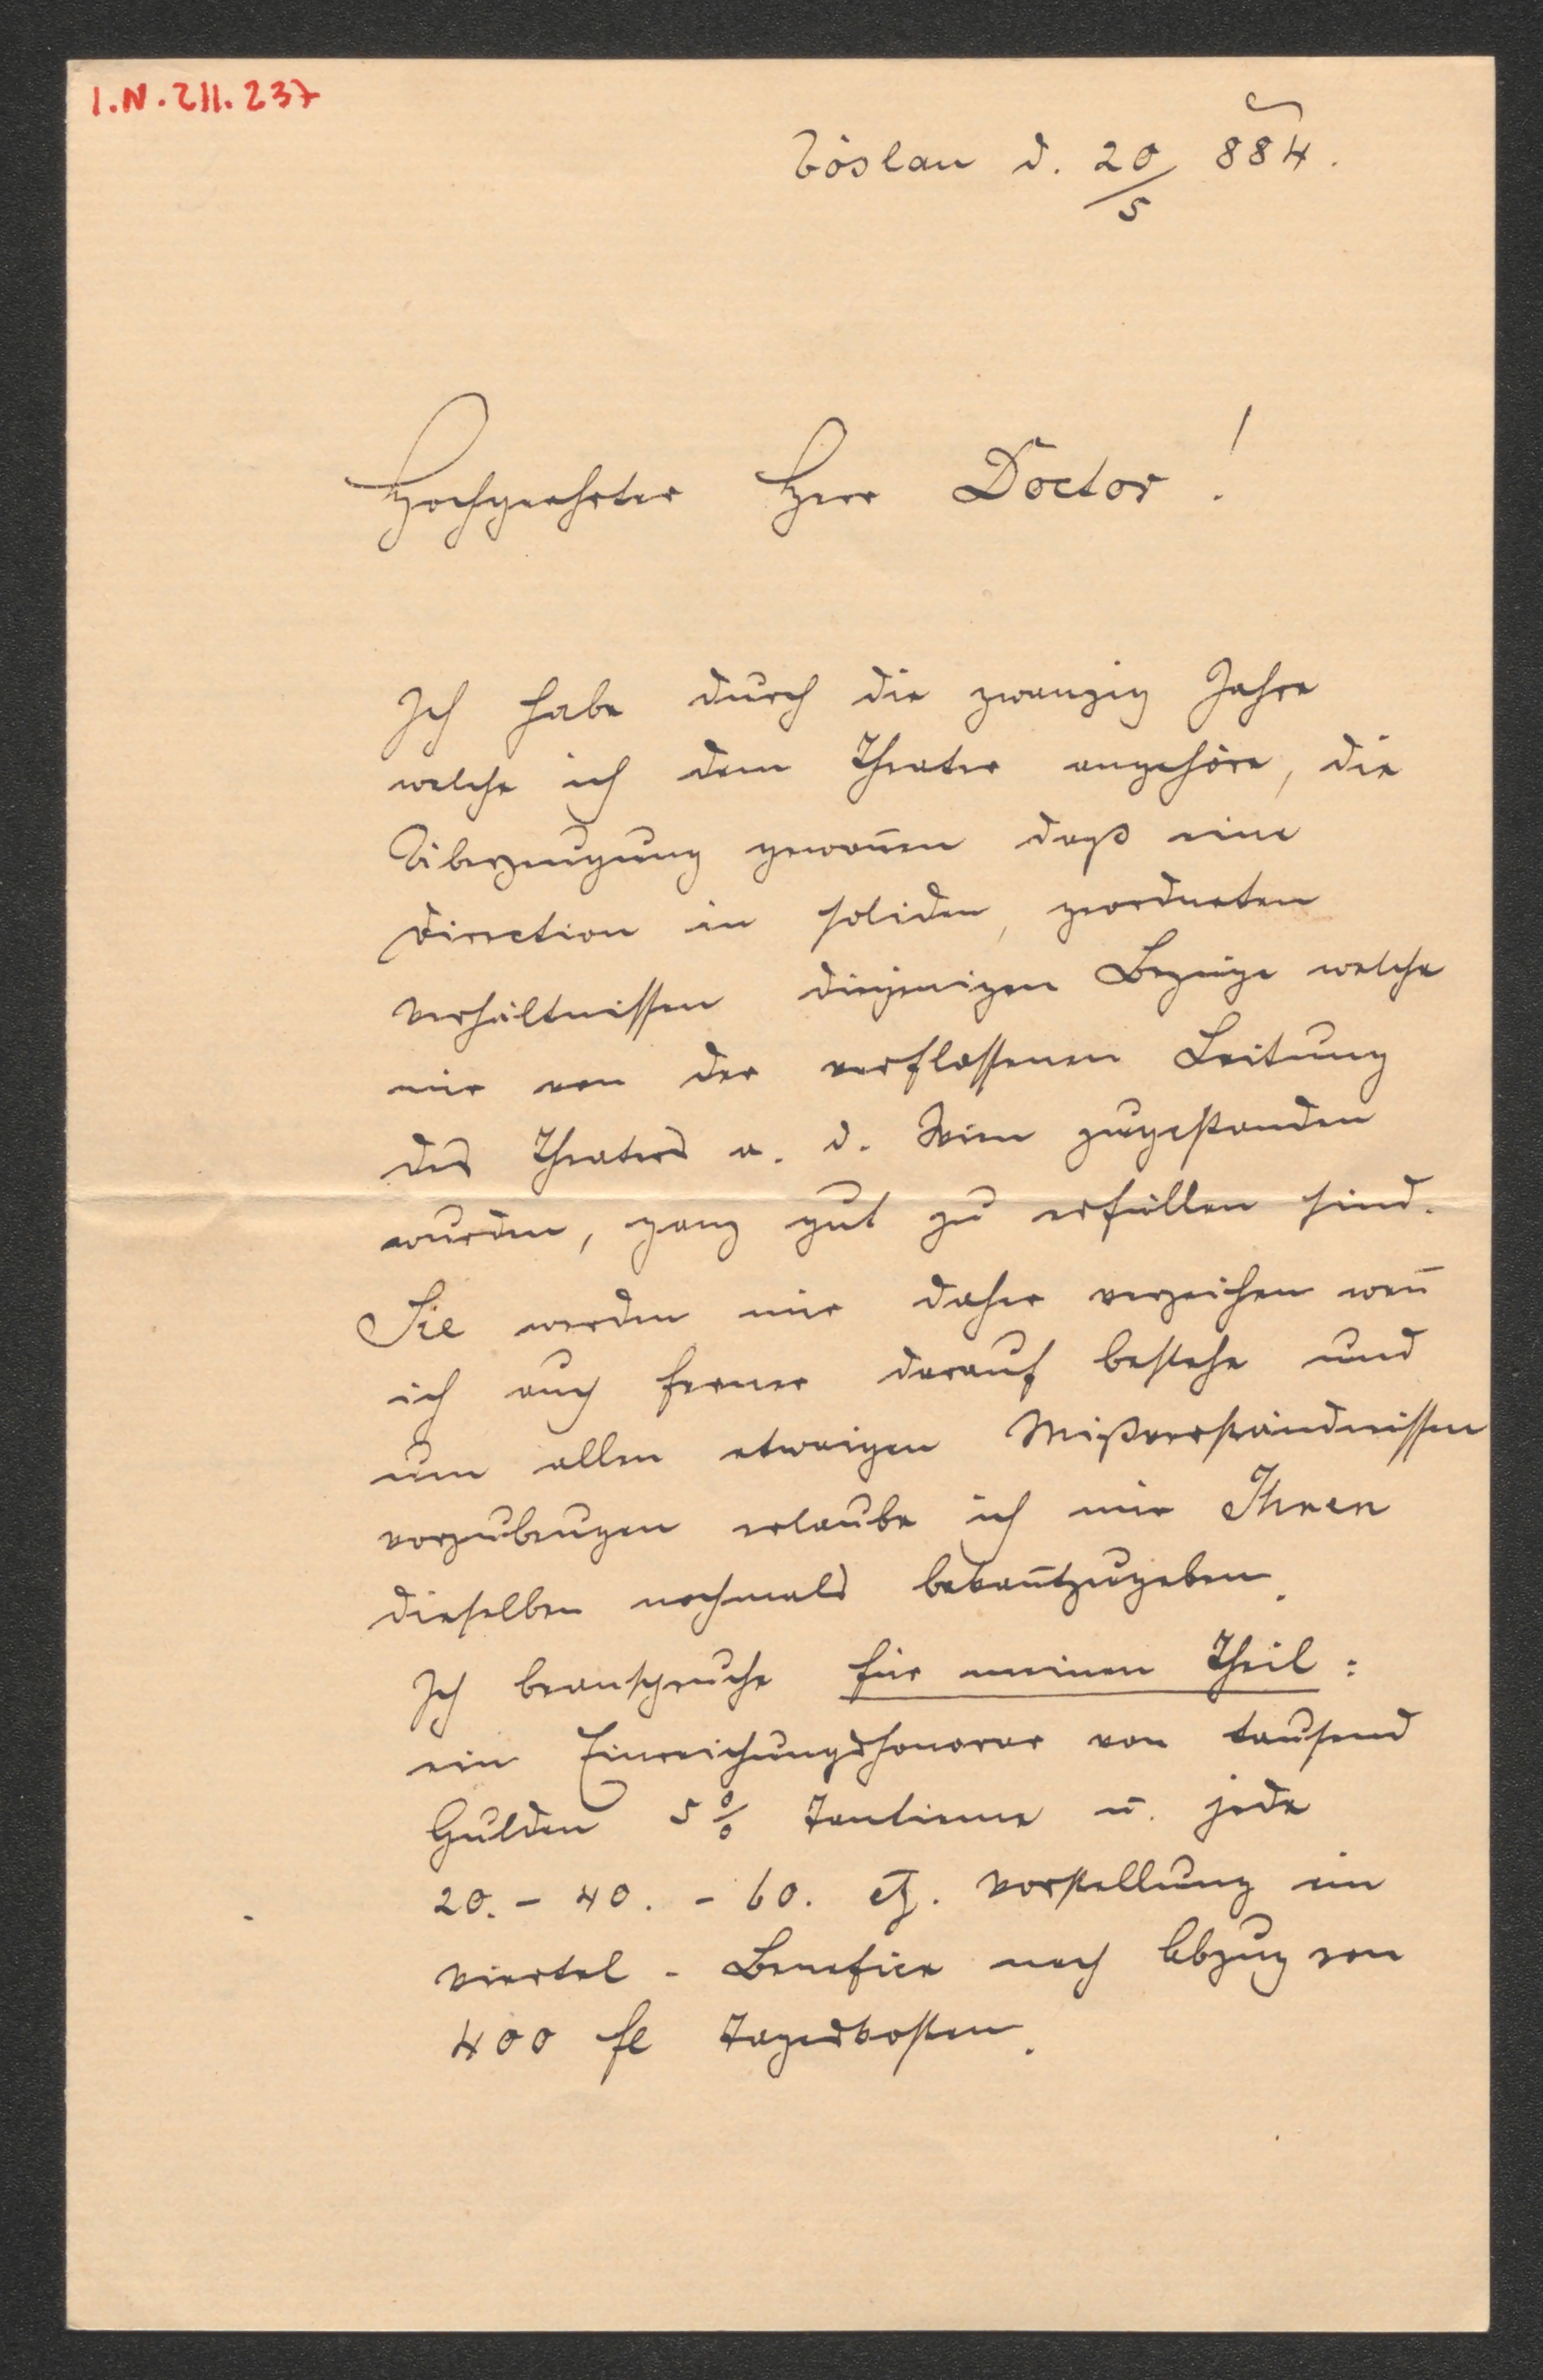 I.N. 211.237
Vöslau d. 20/5 884.
Hochgeehrter Herr Doctor!
Ich habe durch die zwanzig Jahre
welche ich dem Theater angehöre, die
Überzeugung gewon̄en daß eine
Direction in soliden, geordneten
Verhältnissen diejenigen Bezüge welche
mir von der verflossenen Leitung
des Theaters a. d. Wien zugestanden
wurden, ganz gut zu erfüllen sind.
Sie werden mir daher verzeihen wen̄
ich auch ferner darauf bestehe und
um allen etwaigen Mißverständnissen
vorzubeugen erlaube ich mir Ihnen
dieselben nochmals bekan̄tzugeben.
Ich beanspruche für meinen Theil:
ein Einreichungshonorar von tausend
Gulden 5 % Tantieme u. jede
20. - 40. - 60. etz. Vorstellung ein
Viertel - Benefice nach Abzug von
400 fl Tageskosten.